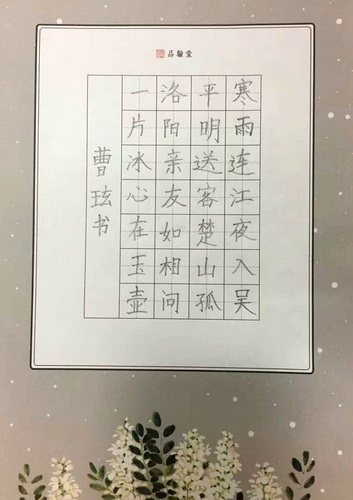 品翰堂
寒雨连江夜入吴
平明送客楚山孤
洛阳亲友如相问
一片冰心在玉壶
曹玹书